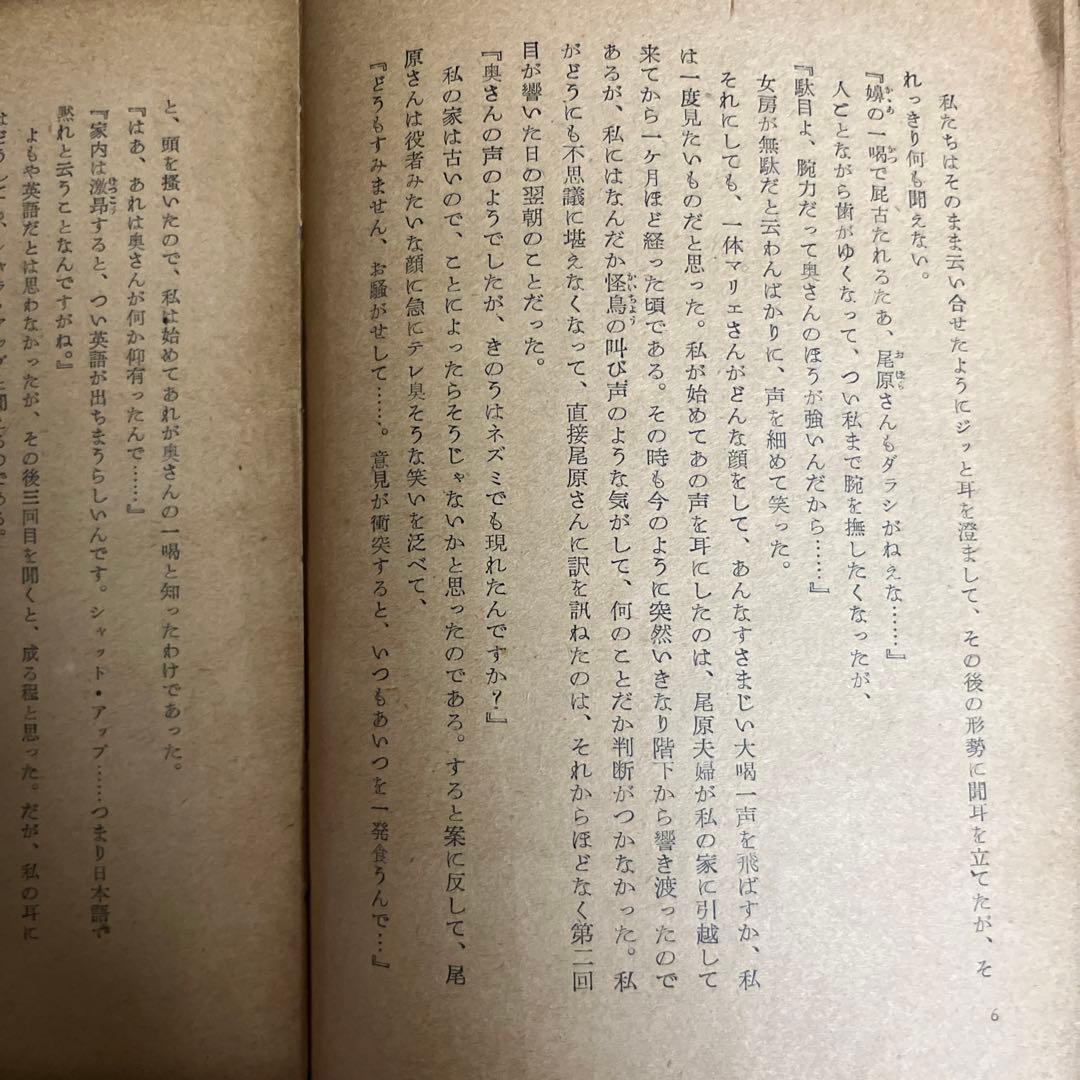 私たちはそのまま云い合せたようにジッと耳を澄まして、その後の形勢に聞耳を立てたが、そ
れっきり何も聞えない。
『嬶の一喝で屁古たれるたあ、尾原さんもダラシがねぇな……』
人ごとながら歯がゆくなって、つい私まで腕を撫したくなったが、
『駄目よ、腕力だって奥さんのほうが強いんだから……』
女房が無駄だと云わんばかりに、声を細めて笑った。
それにしても、一体マリエさんがどんな顔をして、あんなすさまじい大喝一声を飛ばすか、私
は一度見たいものだと思った。私が始めてあの声を耳にしたのは、尾原夫婦が私の家に引越して
来てから一ヶ月ほど経った頃である。その時も今のように突然いきなり階下から響き渡ったので
あるが、私にはなんだか怪鳥の叫び声のような気がして、何のことだか判断がつかなかった。私
がどうにも不思議に堪えなくなって、直接尾原さんに訳を訊ねたのは、それからほどなく第二回
目が響いた日の翌朝のことだった。
『奥さんの声のようでしたが、きのうはネズミでも現れたんですか?』
私の家は古いので、ことによったらそうじゃないかと思ったのである。すると案に反して、尾
原さんは役者みたいな顔に急にテレ臭そうな笑いを泛べて、
『どうもすみません、お騒がせして……。意見が衝突すると、いつもあいつを一発食うんで…』
6
と、頭を掻いたので、私は始めてあれが奥さんの一喝と知ったわけであった。
『はあ、あれは奥さんが何か仰有ったんで……』
『家内は激昻すると、つい英語が出ちまうらしいんです。シャット・アップ……つまり日本語で
黙れと云うことなんですがね。』
よもや英語だとは思わなかったが、その後三回目を聞くと、成る程と思った。だが、私の耳に